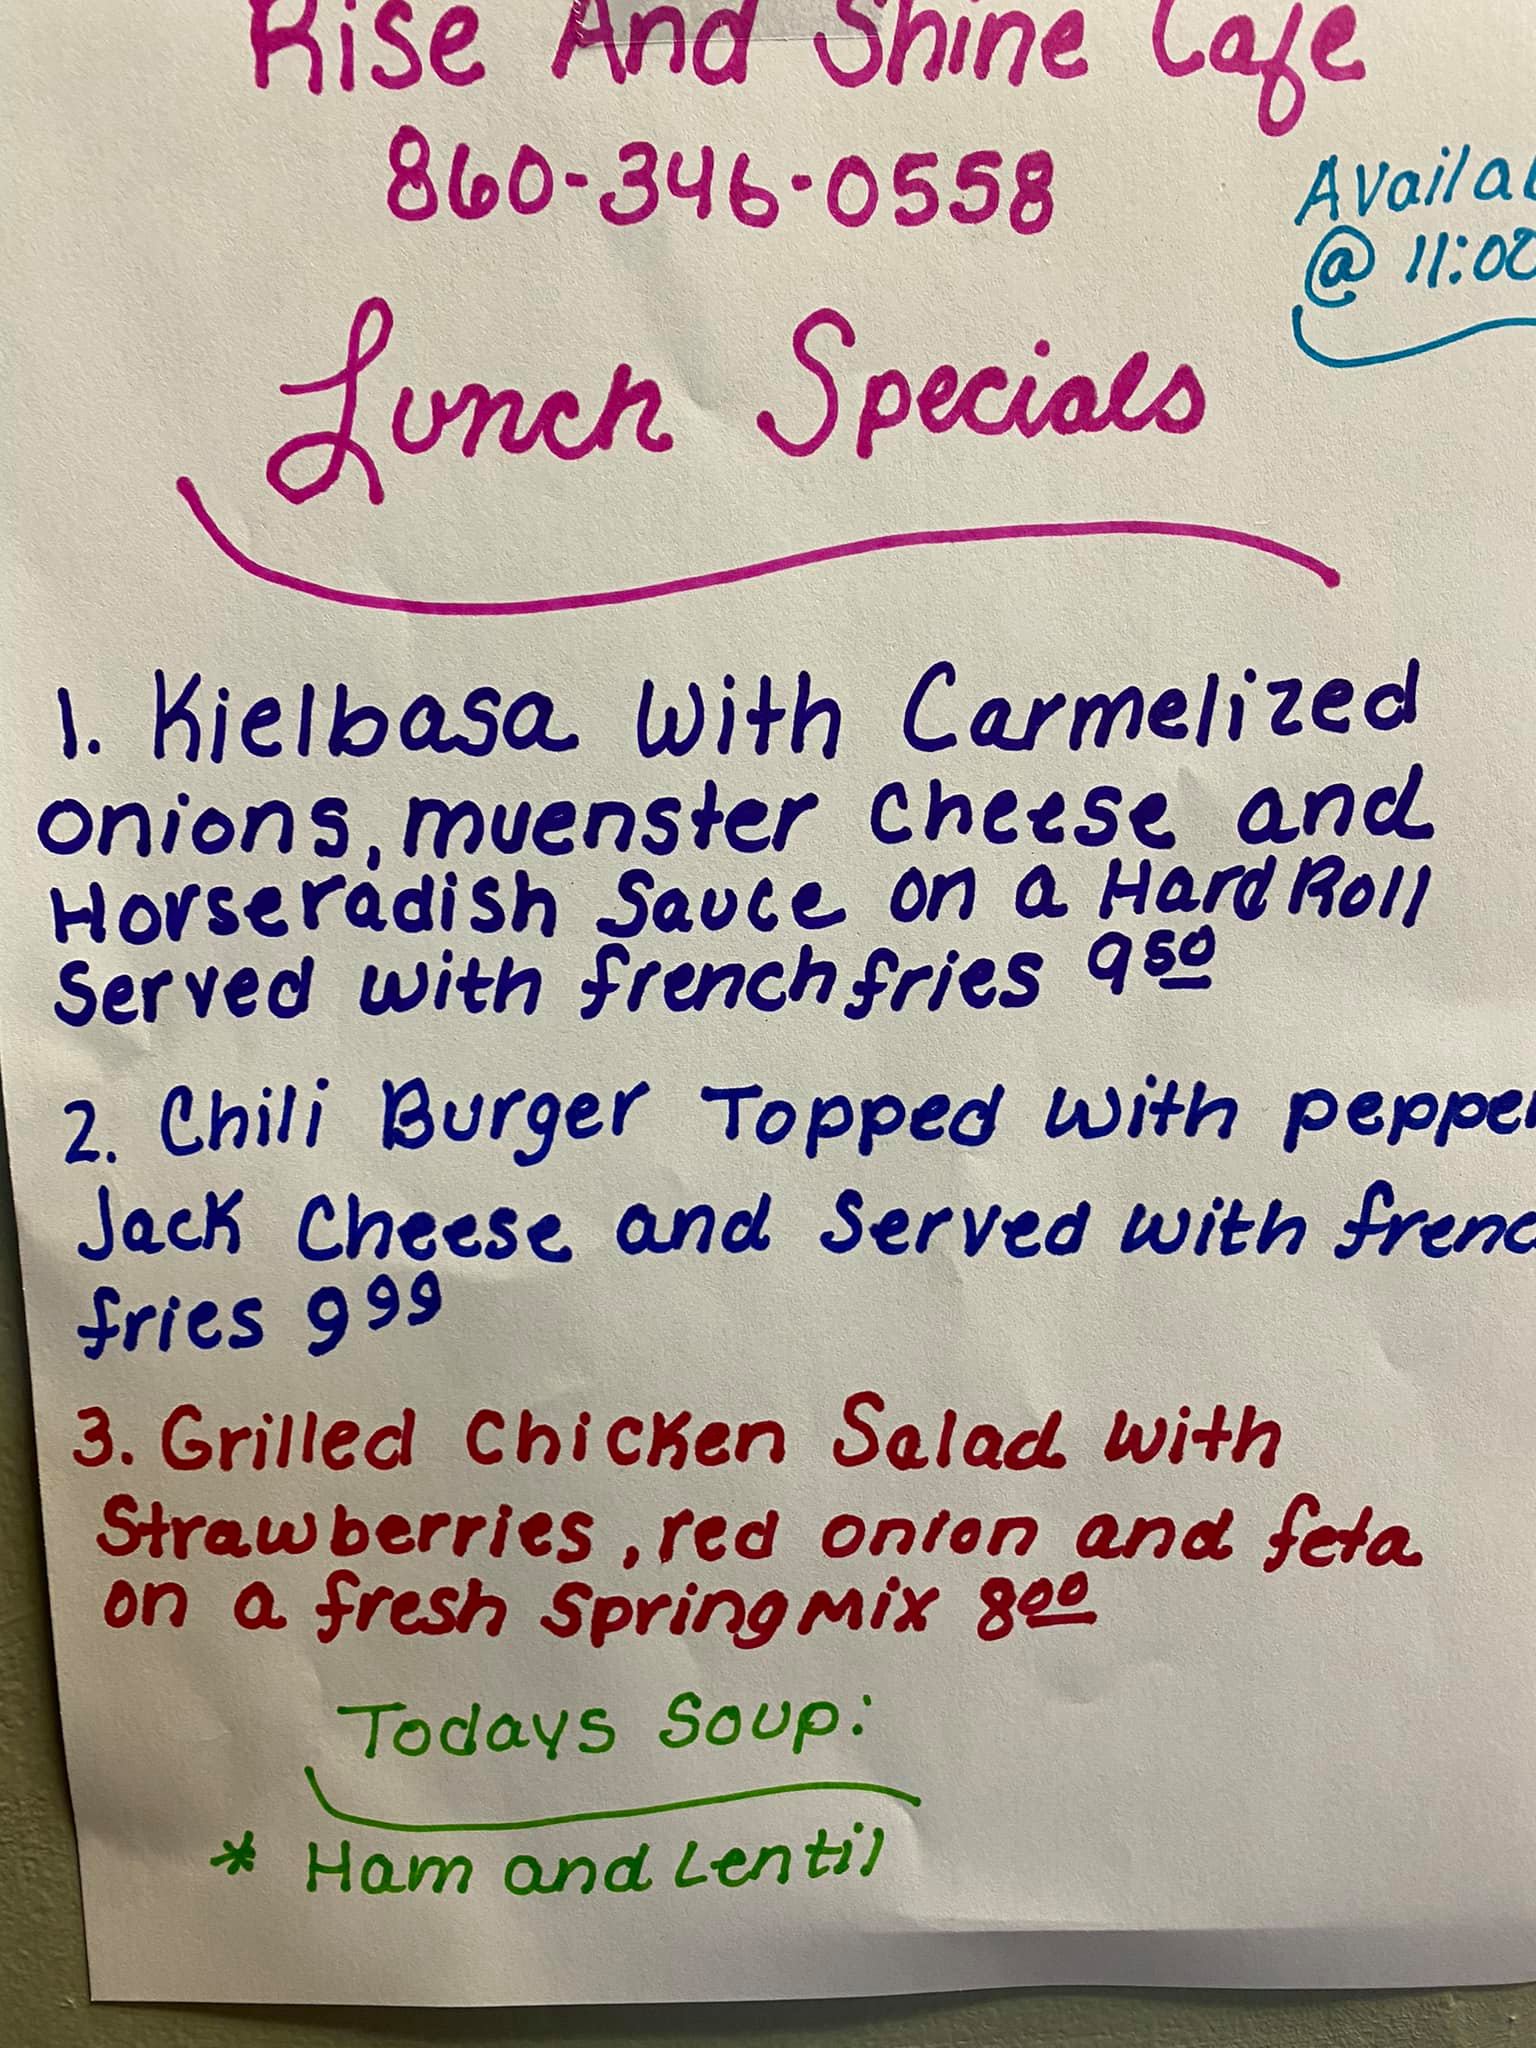 Rise And Shine Cafe
860-346-0558
Availab
@ 11:00
Lunch Specials
1. Kielbasa with Carmelized
onions, muenster cheese and
Horseradish Sauce on a Hard Roll
Served with french fries 9 50
2. Chili Burger Topped with pepper
Jack Cheese and Served with frenc
fries 9 99
3. Grilled Chicken Salad with
Strawberries, red onion and feta
on a fresh spring mix 8 00
Todays Soup:
* Ham and Lentil